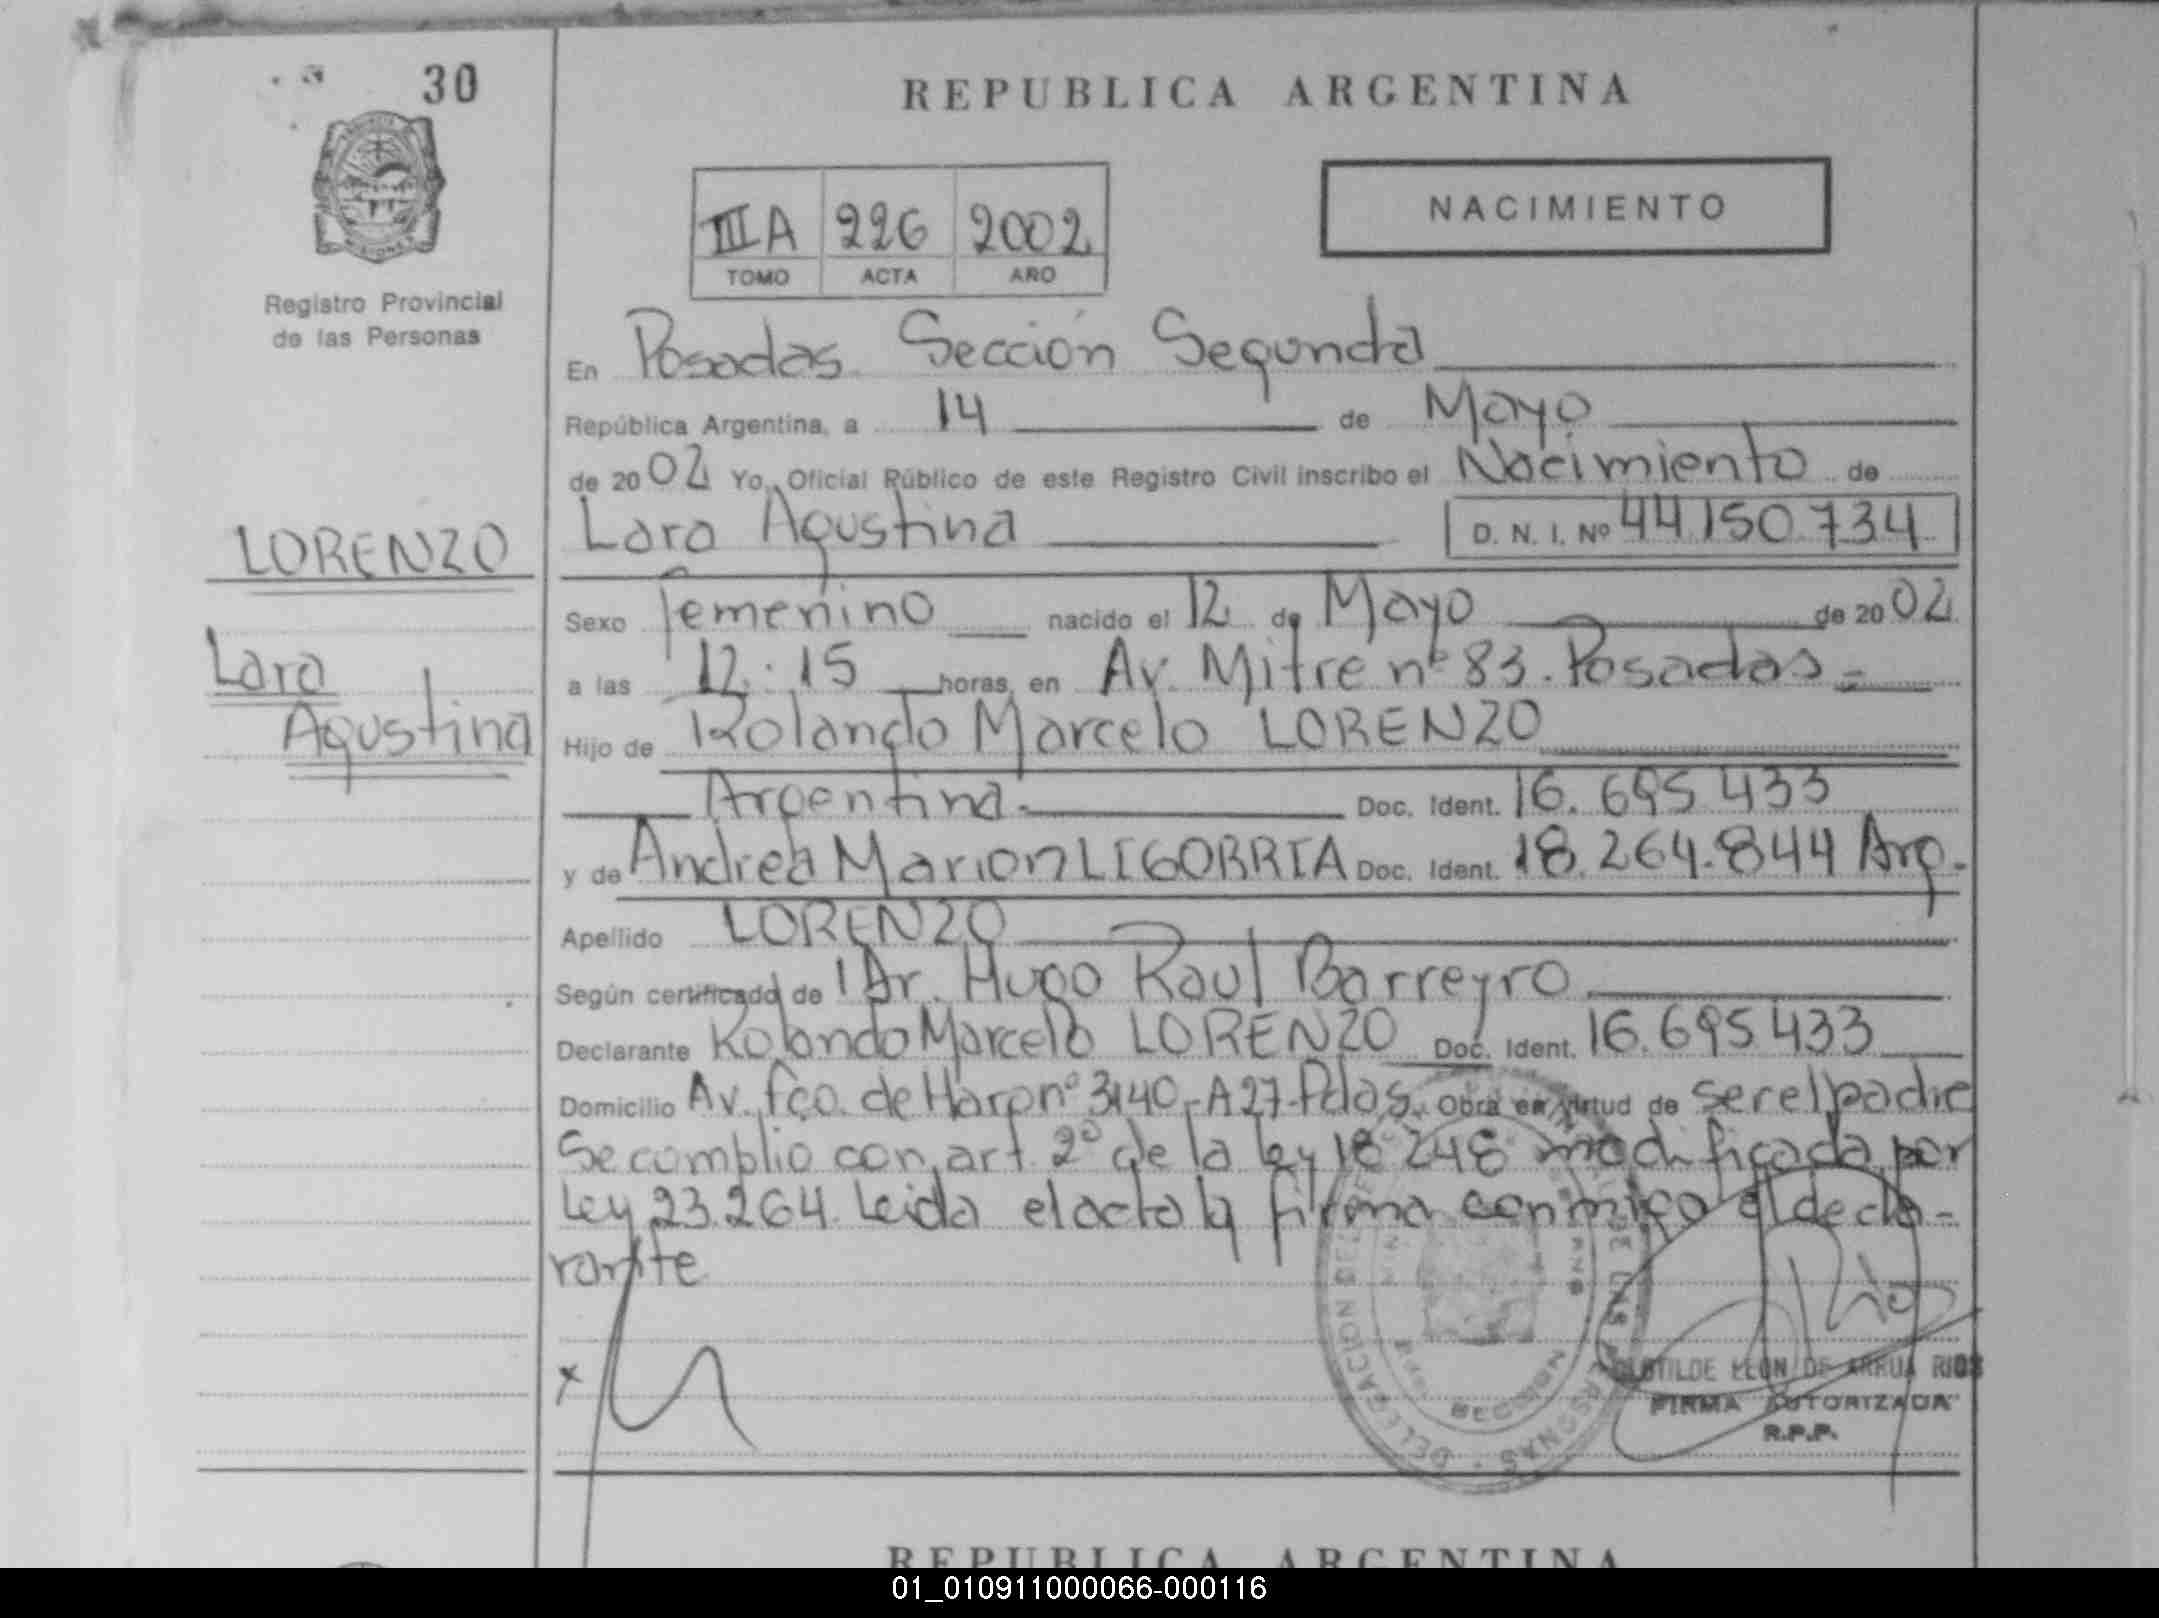 30
REPUBLICA ARGENTINA
NACIMIENTO
III A 226 2002
TOMO ACTA AÑO
Registro Provincial
de las Personas
En Posadas Sección Segunda
República Argentina, a 14 de Mayo
de 2002 Yo, Oficial Público de este Registro Civil inscribo el Nacimiento de
Lara Agustina D. N. I. Nº 44.150.734
LORENZO
Lara
Agustina
Sexo Femenino nacido el 12 de Mayo de 2002
a las 12:15 horas, en Av. Mitre nº 83. Posadas =
Hijo de Rolando Marcelo LORENZO
Argentina. Doc. Ident. 16.695.433
y de Andrea Marion LIGORRIA Doc. Ident. 18.264.844 Arg.
Apellido LORENZO
Según certificado de Dr. Hugo Raul Barreyro
Declarante Rolando Marcelo LORENZO Doc. Ident. 16.695.433
Domicilio Av. Fco. de Haro nº 3140-A27-Pdas. Obra en virtud de ser el padre
Se cumplio con art. 2º de la ley 18.248 modificada por
Ley 23.264. Leida el acta la firma conmigo el decla-
rante
x
CLOTILDE LEON DE ARRUA RIOS
FIRMA AUTORIZADA
R.P.P.
REPUBLICA ARGENTINA
01_010911000066-000116